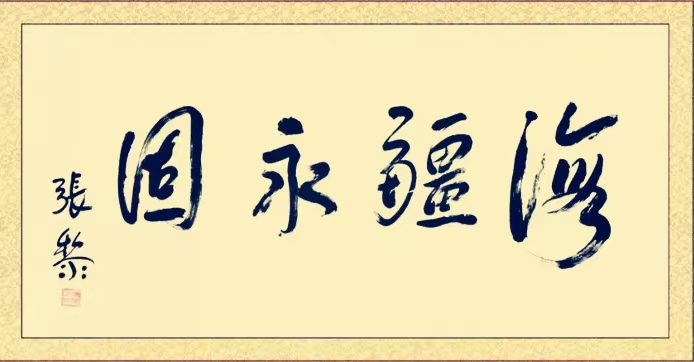 海疆永固
張黎